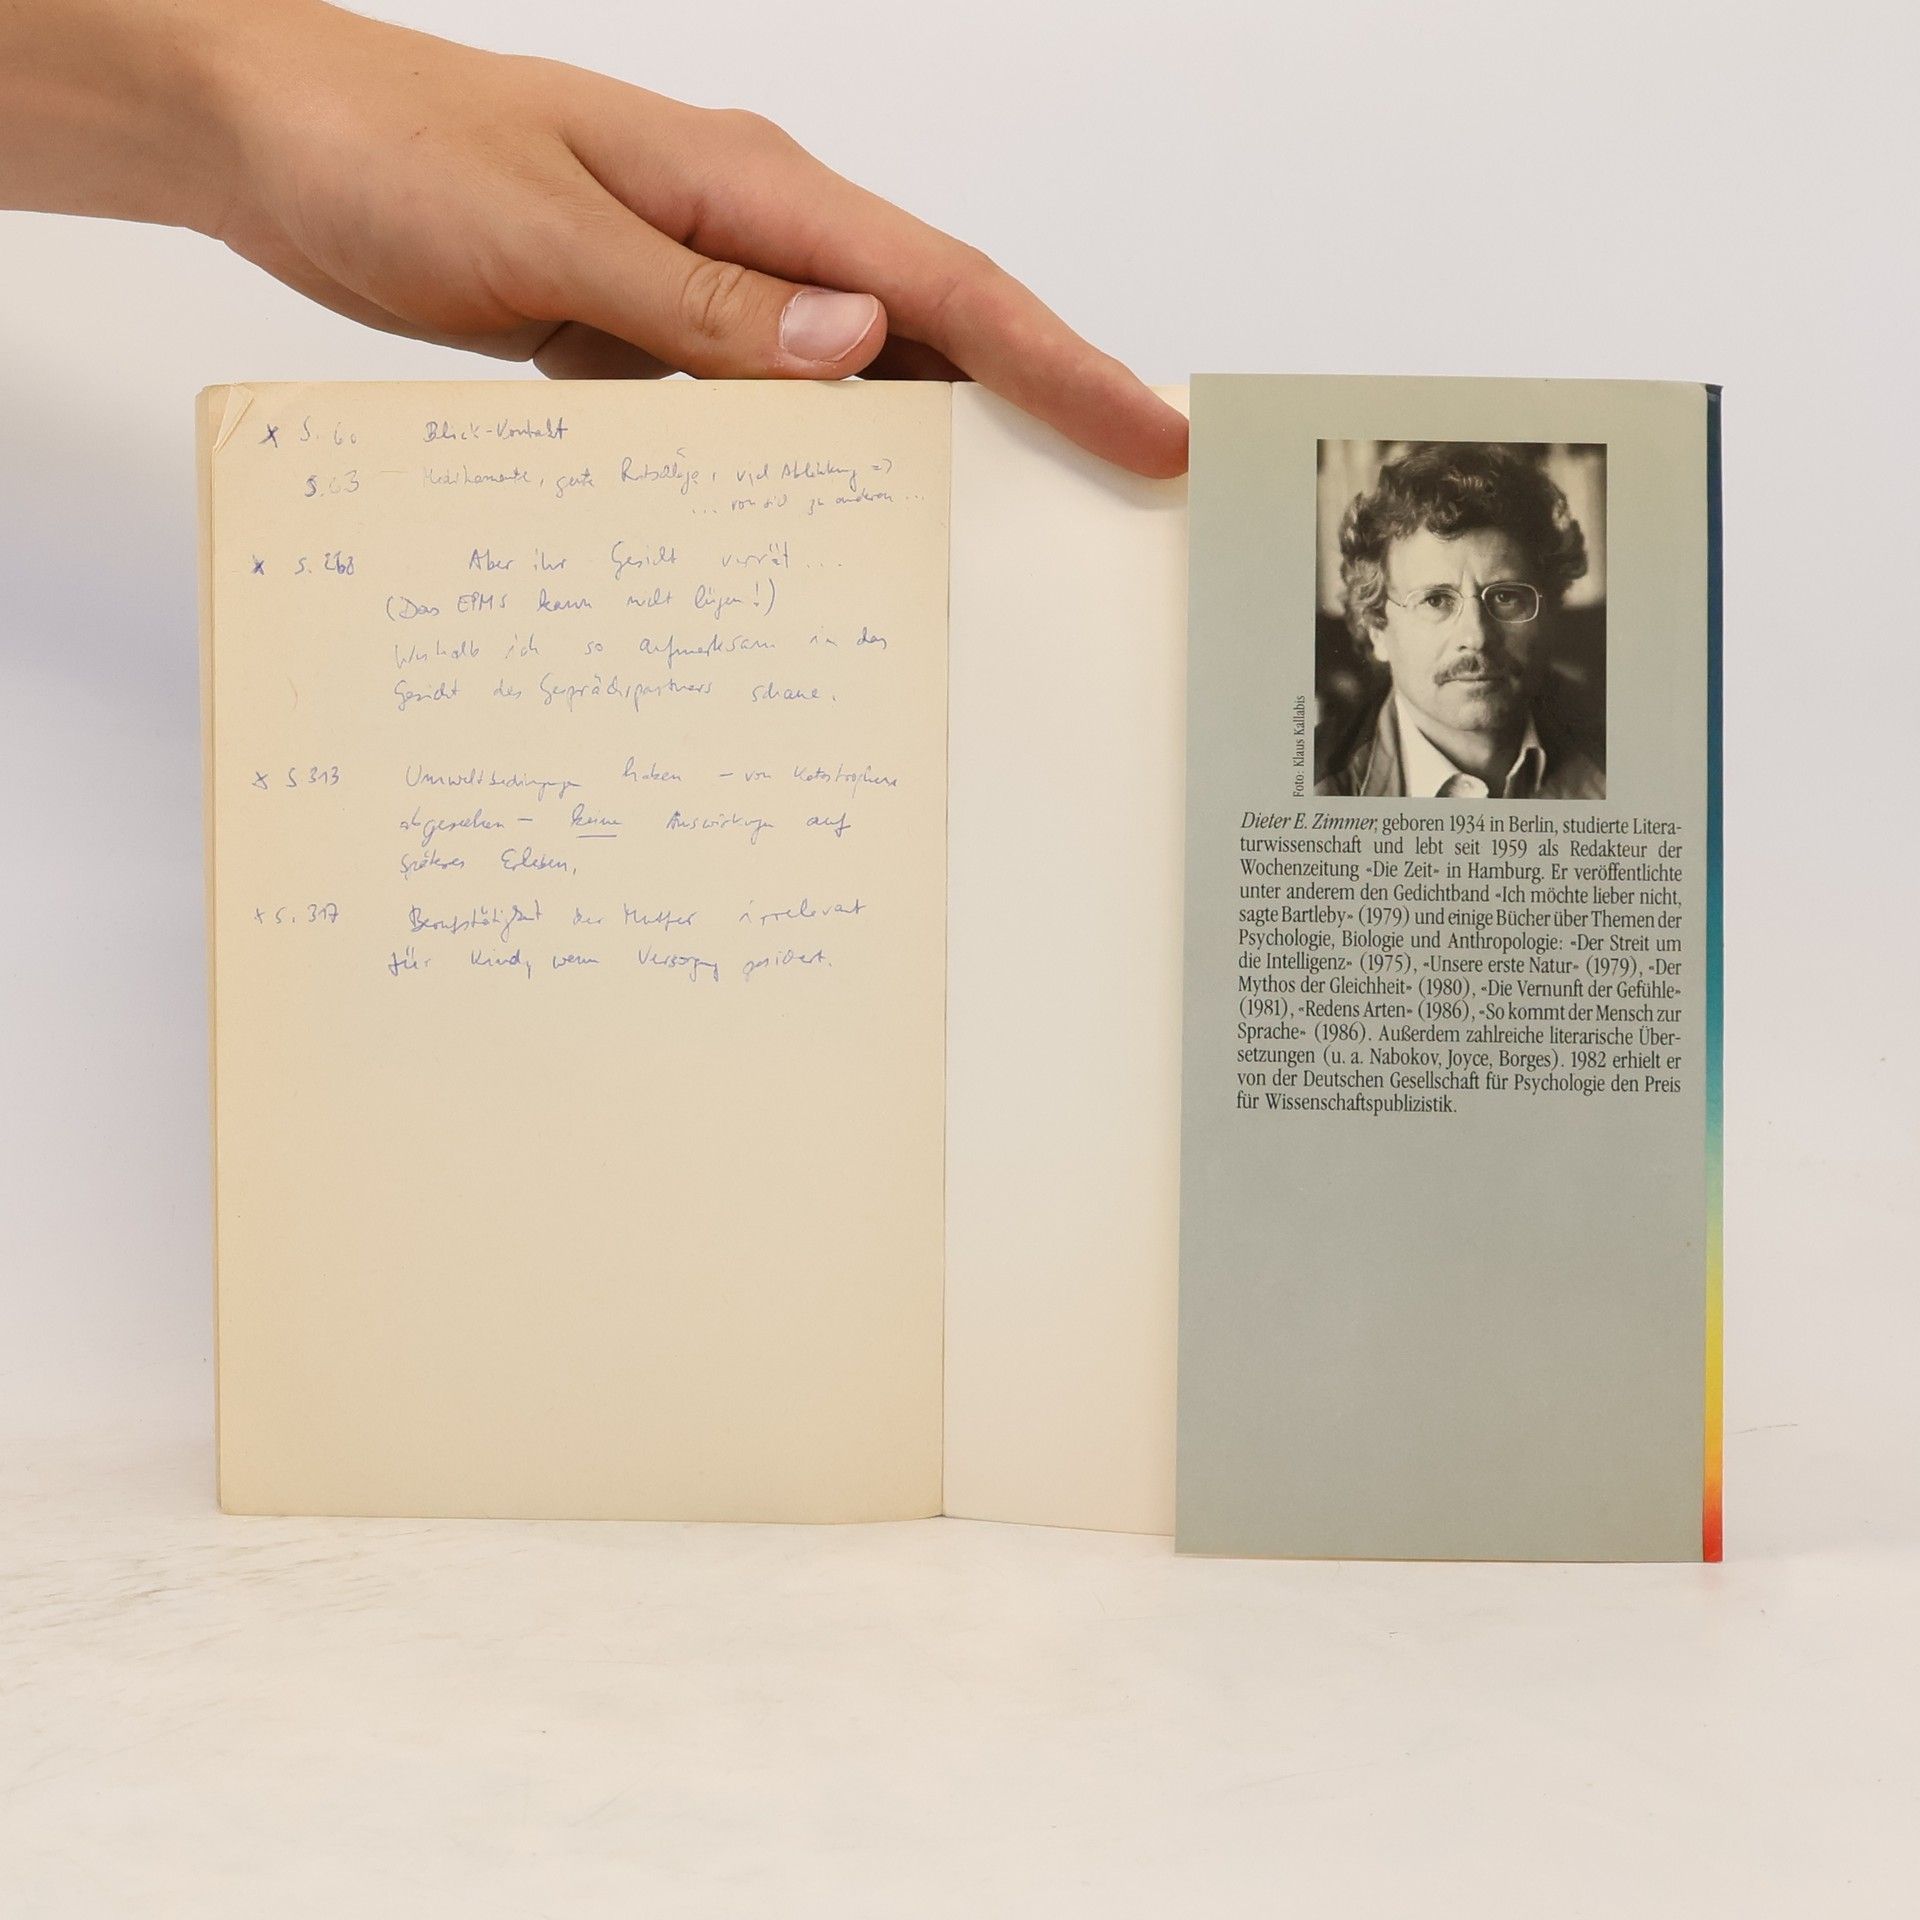 x S. 60 Blick-Kontakt
S. 63 — Medikamente, gute Ratschläge, viel Ablenkung =>
... von sich zu anderen ...
x S. 268 Aber ihr Gesicht verrät ...
(Das EPMS kann nicht lügen!)
Weshalb ich so aufmerksam in das
Gesicht des Gesprächspartners schaue.
x S 313 Umweltbedingungen haben – von Katastrophen
abgesehen – keine Auswirkungen auf
späteres Erleben.
x S. 317 Berufstätigkeit der Mutter irrelevant
für Kind, wenn Versorgung gesichert.
Foto: Klaus Kallabis
Dieter E. Zimmer, geboren 1934 in Berlin, studierte Litera-
turwissenschaft und lebt seit 1959 als Redakteur der
Wochenzeitung «Die Zeit» in Hamburg. Er veröffentlichte
unter anderem den Gedichtband «Ich möchte lieber nicht,
sagte Bartleby» (1979) und einige Bücher über Themen der
Psychologie, Biologie und Anthropologie: «Der Streit um
die Intelligenz» (1975), «Unsere erste Natur» (1979), «Der
Mythos der Gleichheit» (1980), «Die Vernunft der Gefühle»
(1981), «Redens Arten» (1986), «So kommt der Mensch zur
Sprache» (1986). Außerdem zahlreiche literarische Über-
setzungen (u. a. Nabokov, Joyce, Borges). 1982 erhielt er
von der Deutschen Gesellschaft für Psychologie den Preis
für Wissenschaftspublizistik.